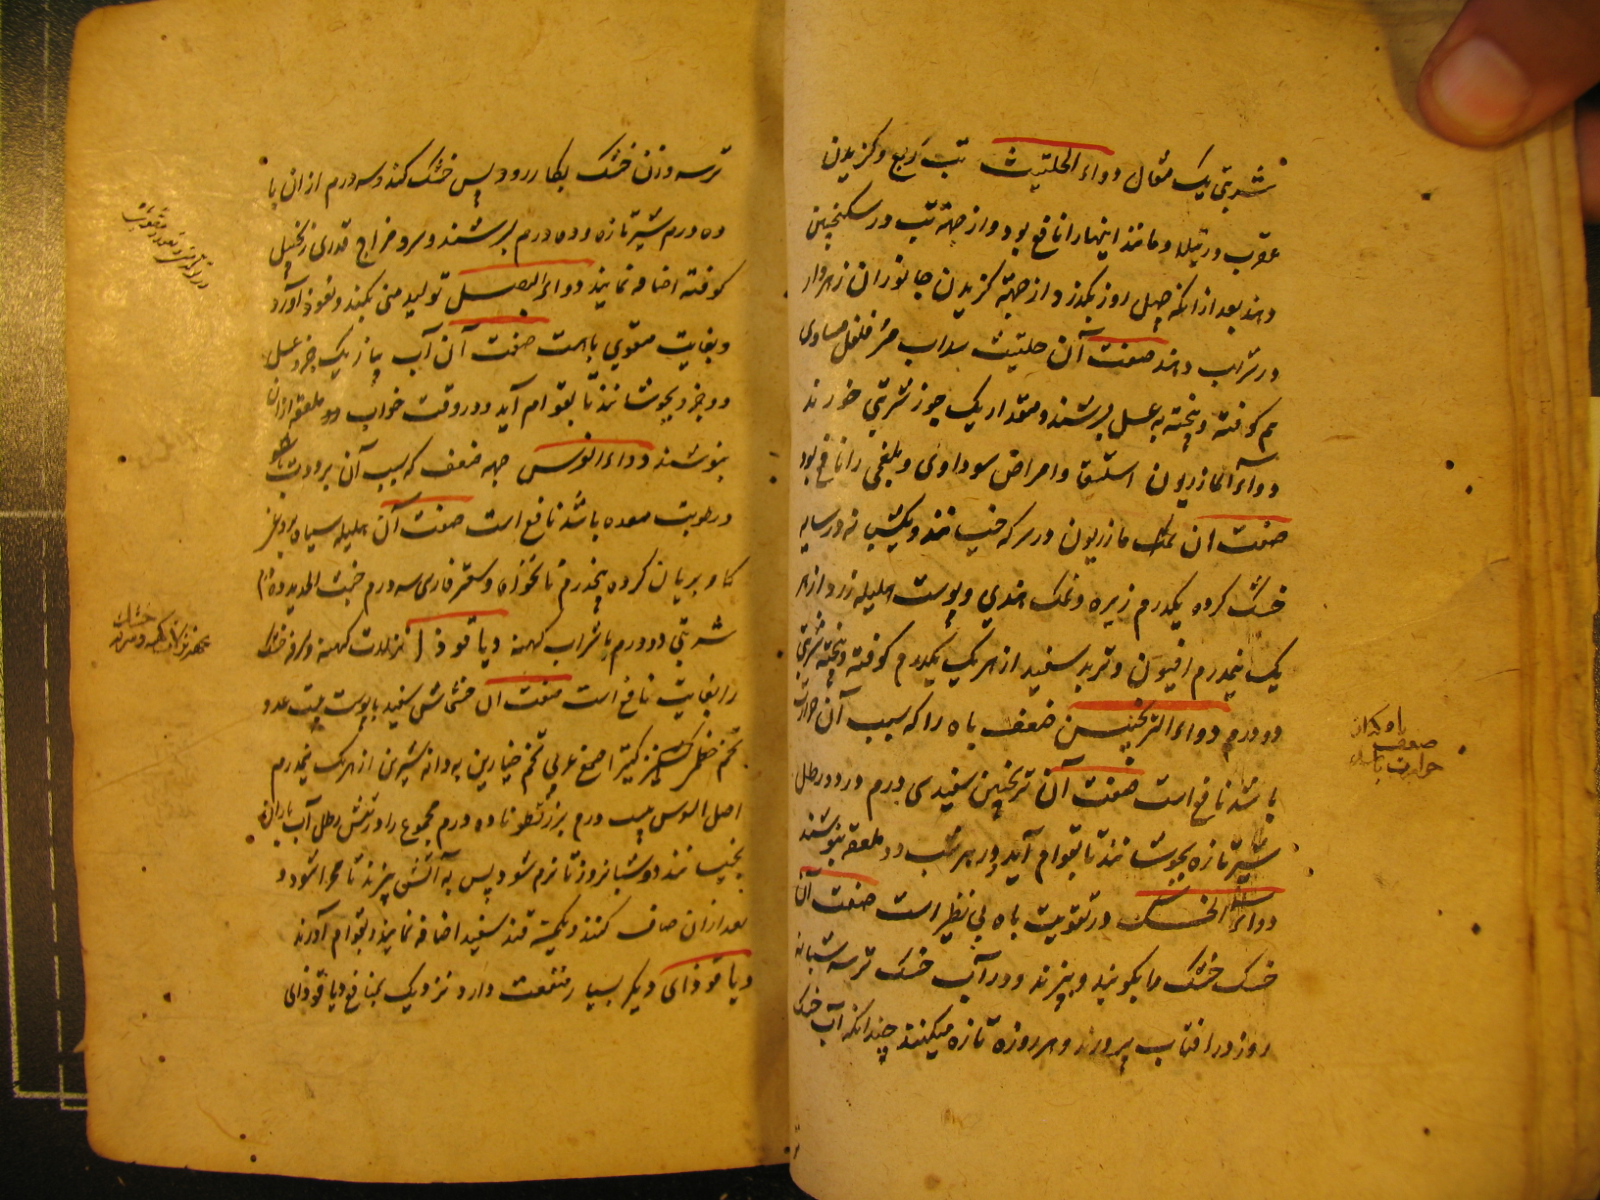 شربتی یک مثقال دواء الحلتیث تب ربع و کزیدن
عقرب و رتیلا و مانند اینها را نافع بود و از جهة تب در سکنجبین
دهند بعد از انکه چهل روز بکذرد و از جهة کزیدن جانوران زهردار
در شراب دهند صفت آن حلتیث سداب مر فلفل مساوی
هم کوفته و پخته به عسل بسرشند و مقدار یک جوز شربتی خورند
دواء المازریون استسقا و امراض سوداوی و بلغمی را نافع بود
صفت ان نمک مازریون در سرکه خیسانند و یکشب نه در سایه
خشک کرده یکدرم زیره و نمک هندی و پوست هلیله زرد از هر
یک نیمدرم افیون و تربد سفید از هر یک یکدرم کوفته و پخته شربتی
دو درم دواء الترنجبین ضعف باه را که سبب آن حرارت
باشد نافع است صفت آن ترنجبین سفید سی درم در دو رطل
شیر تازه بجوشانند تا بقوام آید و هر شب دو ملعقه بنوشند
دواء الخسک در تقویت باه بی نظیر است صفت آن
خسک خشک ما بکوبند و بپزند و در آب خسک تر سه شبانه
روز در افتاب بپرورند و هر روزه تازه میکنند چندانکه آب خسک
باه که ان
ضعف
حرارت باشد
تر سه وزن خشک بکار رود پس خشک کنند و سه درم از ان با
ده درم شیر تازه و ده درم بسرشند و سرد مزاج قدری زنجبیل
کوفته اضافه نمایند دواء البصل تولید منی بکند و نعوذ آورد
و بغایت مقوی باه است صفت آن آب پیاز یک جزو عسل
دو جزو بجوشانند تا بقوام آید و در وقت خواب دو ملعقه ازان
بنوشند دواء النوس جهه ضعف که سبب آن برودت
و رطوبت معده باشد نافع است صفت آن هلیله سیاه بروغن
کاو بریان کرده پنجدرم نانخواه و سعتر فارسی سه درم خبث الحدید ده درم
شربتی دو درم با شراب کهنه دیاقوذا نزلات کهنه و سرفه خشک
را بغایت نافع است صفت ان خشخاش سفید با پوست بیست عدد
تخم خطمی کتیرا صمغ عربی تخم خیارین به دانه شیرین از هر یک نیمدرم
اصل السوس بیست درم بزرقطونا ده درم مجموع را در شش رطل آب باران
بخیسانند دو شبانروز تا نرم شود پس به آتش بپزند تا مهرا شود و
بعد از ان صاف کنند و یکمنیه قند سفید اضافه نمایند و بقوام آورند
دیاقوذای دیکر بسیار منفعت دارد نزدیک بمنافع دیاقوذای